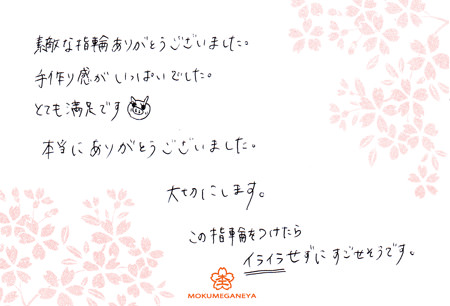 素敵な指輪ありがとうございました。
手作り感がいっぱいでした。
とても満足です
本当にありがとうございました。
大切にします。
この指輪をつけたら
イライラせずにすごせそうです。
MOKUMEGANEYA